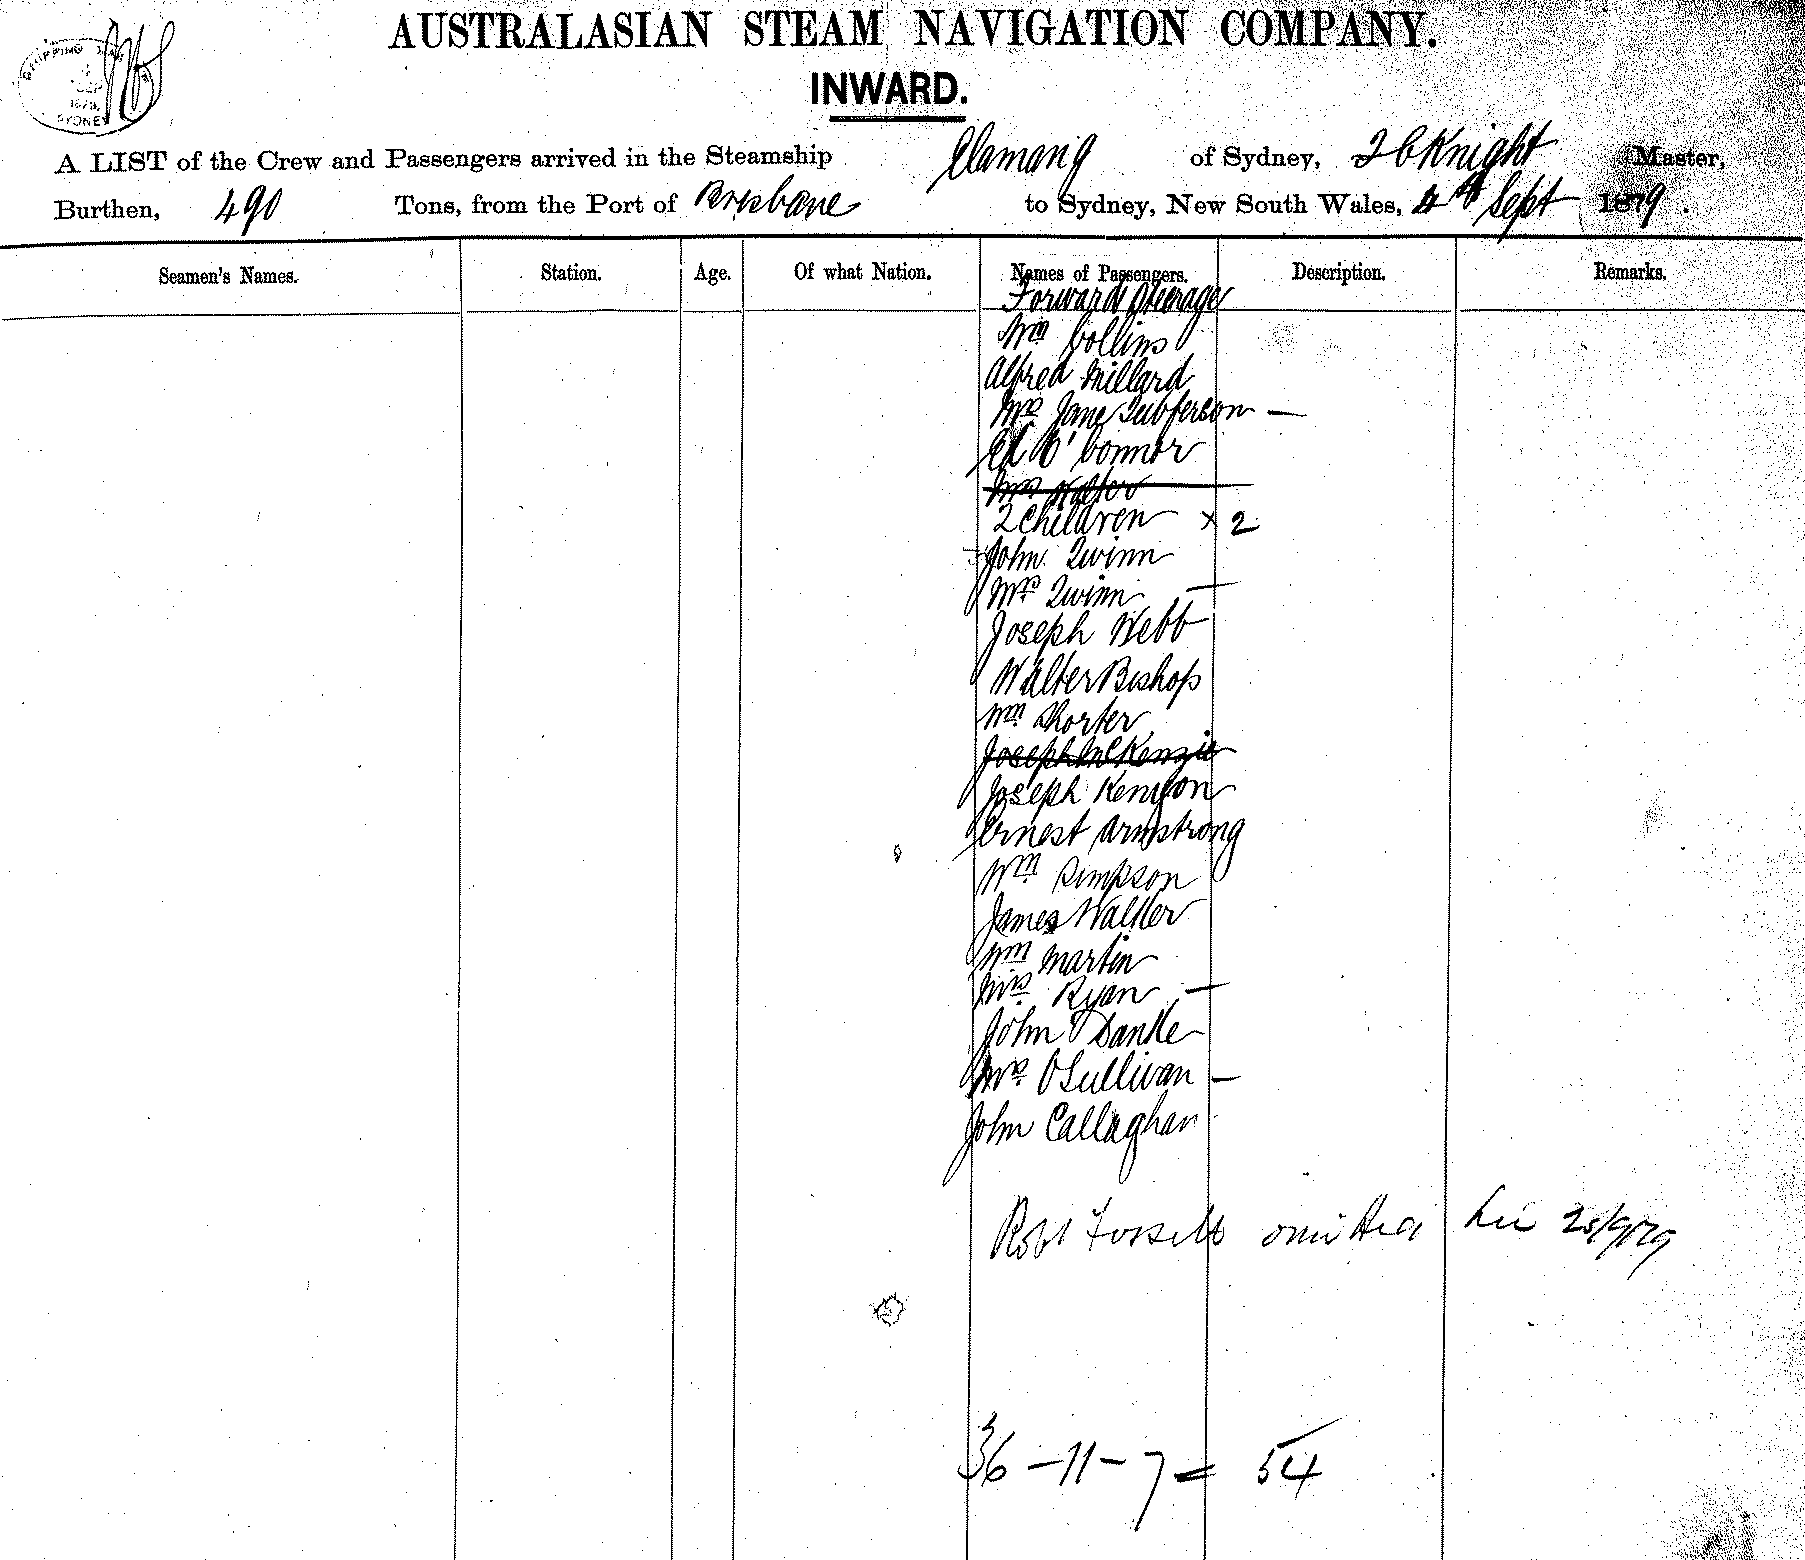 AUSTRALASIAN STEAM NAVIGATION COMPANY.
INWARD.
SHIPPING
1879
SYDNEY
A LIST of the Crew and Passengers arrived in the Steamship Elamang of Sydney, Knight Master,
Burthen, 490 Tons, from the Port of Brisbane to Sydney, New South Wales, 4th Sept 1879.
Seamen's Names. Station. Age. Of what Nation. Names of Passengers. Description. Remarks.
Forward Steerage
Wm Collins
Alfred Millard
Mrs Jane —
Ed O'Connor
Mrs Walter
2 Children × 2
John Quinn
Mrs Quinn —
Joseph Webb
Walter Bishop
Wm Shorter
Joseph McKenzie
Joseph Kenyon
Ernest Armstrong
Wm Simpson
James Walker
Wm Martin
Mrs Ryan —
John
Mrs OSullivan —
John Callaghan
Robt omitted 25/9/79
36 – 11 – 7 = 54